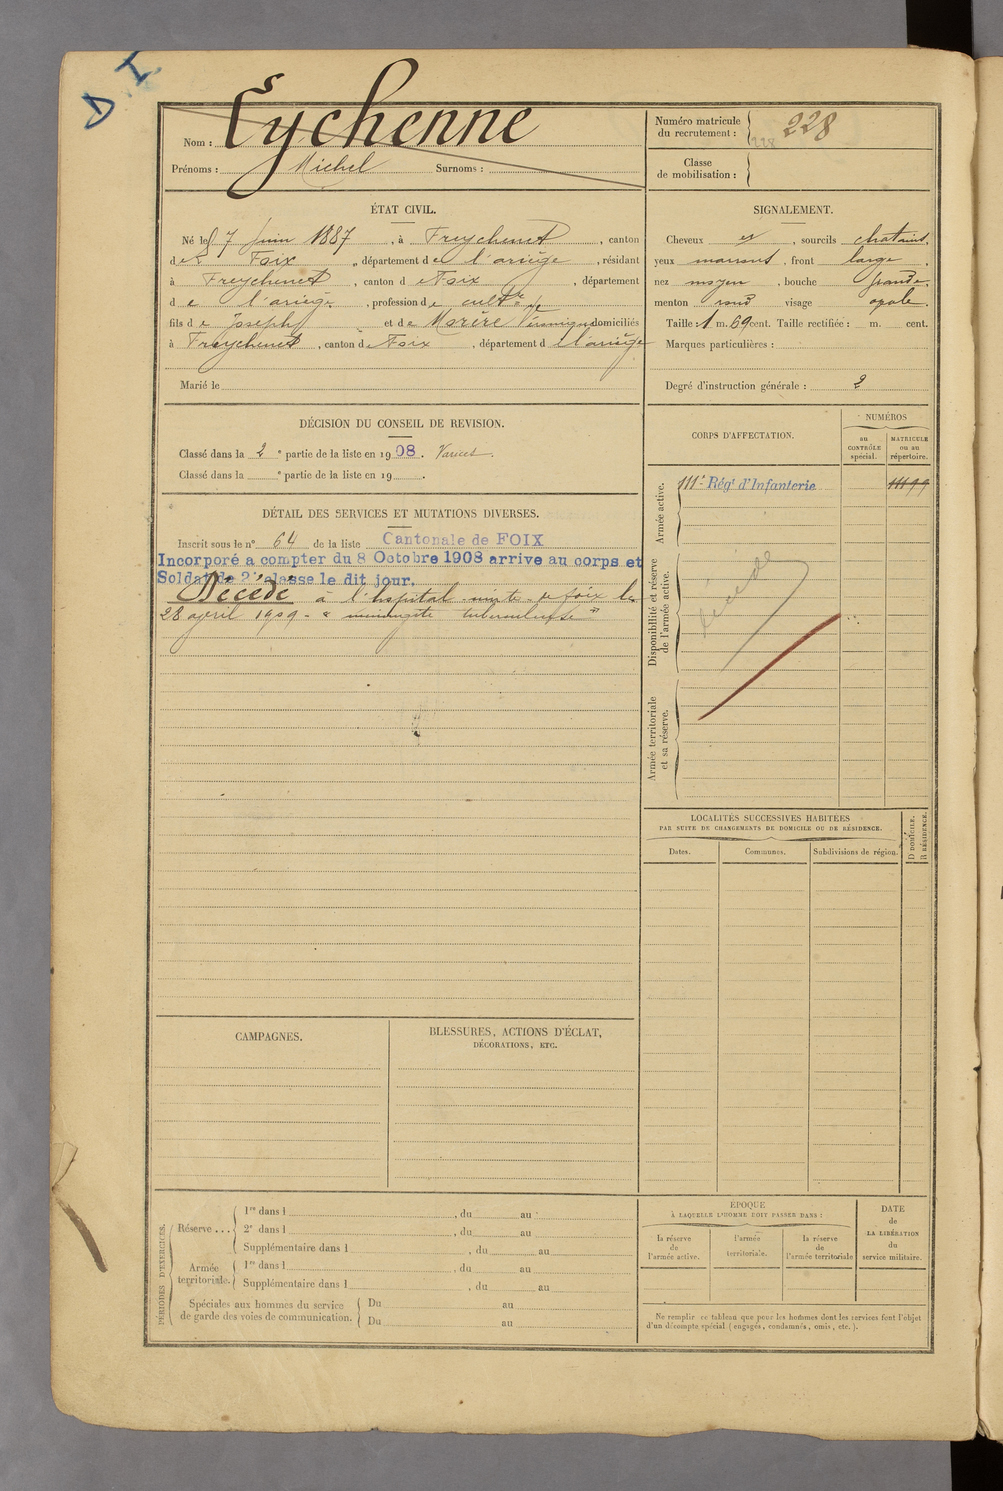 D. I.
Nom : Eychenne
Prénoms : Michel Surnoms :
Numéro matricule
du recrutement : 228 228
Classe
de mobilisation :
ÉTAT CIVIL.
Né le 7 juin 1887, à Freychenet, canton
de Foix, département de l'ariège, résidant
à Freychenet, canton de Foix, département
de l'ariège, profession de cultr
fils de Joseph et de domiciliés
à Freychenet, canton de Foix, département d l'ariège
Marié le
SIGNALEMENT.
Cheveux et, sourcils chatains,
yeux marrons, front large,
nez moyen, bouche grande,
menton rond visage ovale.
Taille : 1 m. 69 cent. Taille rectifiée : m. cent.
Marques particulières :
Degré d'instruction générale : 2
DÉCISION DU CONSEIL DE REVISION.
Classé dans la 2e partie de la liste en 1908. Varices.
Classé dans la e partie de la liste en 19 .
DÉTAIL DES SERVICES ET MUTATIONS DIVERSES.
Inscrit sous le n° 64 de la liste Cantonale de FOIX
Incorporé a compter du 8 Octobre 1908 arrive au corps et
Soldat de 2e classe le dit jour.
Décédé à l'hopital mixte de foix le
28 avril 1909 - "méningite tuberculeuse"
CORPS D'AFFECTATION.
NUMÉROS
au
CONTRÔLE
spécial.
MATRICULE
ou au
répertoire.
Armée active.
111e Régt d'Infanterie
Disponibilité et réserve
de l'armée active.
décédé
Armée territoriale
et sa réserve.
LOCALITÉS SUCCESSIVES HABITÉES
PAR SUITE DE CHANGEMENTS DE DOMICILE OU DE RÉSIDENCE.
Dates. Communes. Subdivisions de région.
D DOMICILE.
R RÉSIDENCE.
CAMPAGNES.
BLESSURES, ACTIONS D'ÉCLAT,
DÉCORATIONS, ETC.
PÉRIODES D'EXERCICES.
Réserve ...
1re dans l , du au
2e dans l , du au
Supplémentaire dans l , du au
Armée
territoriale.
1re dans l , du au
Supplémentaire dans l , du au
Spéciales aux hommes du service
de garde des voies de communication.
Du au
Du au
ÉPOQUE
À LAQUELLE L'HOMME DOIT PASSER DANS :
la réserve
de
l'armée active.
l'armée
territoriale.
la réserve
de
l'armée territoriale
DATE
de
LA LIBÉRATION
du
service militaire.
Ne remplir ce tableau que pour les hommes dont les services font l'objet
d'un décompte spécial (engagés, condamnés, omis, etc.).